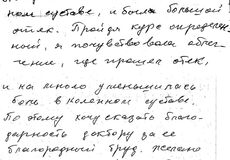 ном суставе, и была большой
отёк. Пройдя курс определен-
ный, я почувствовала облег-
чение, где прошел отёк,
и на много уменьшилась
боль в коленном суставе.
По этому хочу сказать благо-
дарность доктору за ее
благородный труд. желаю